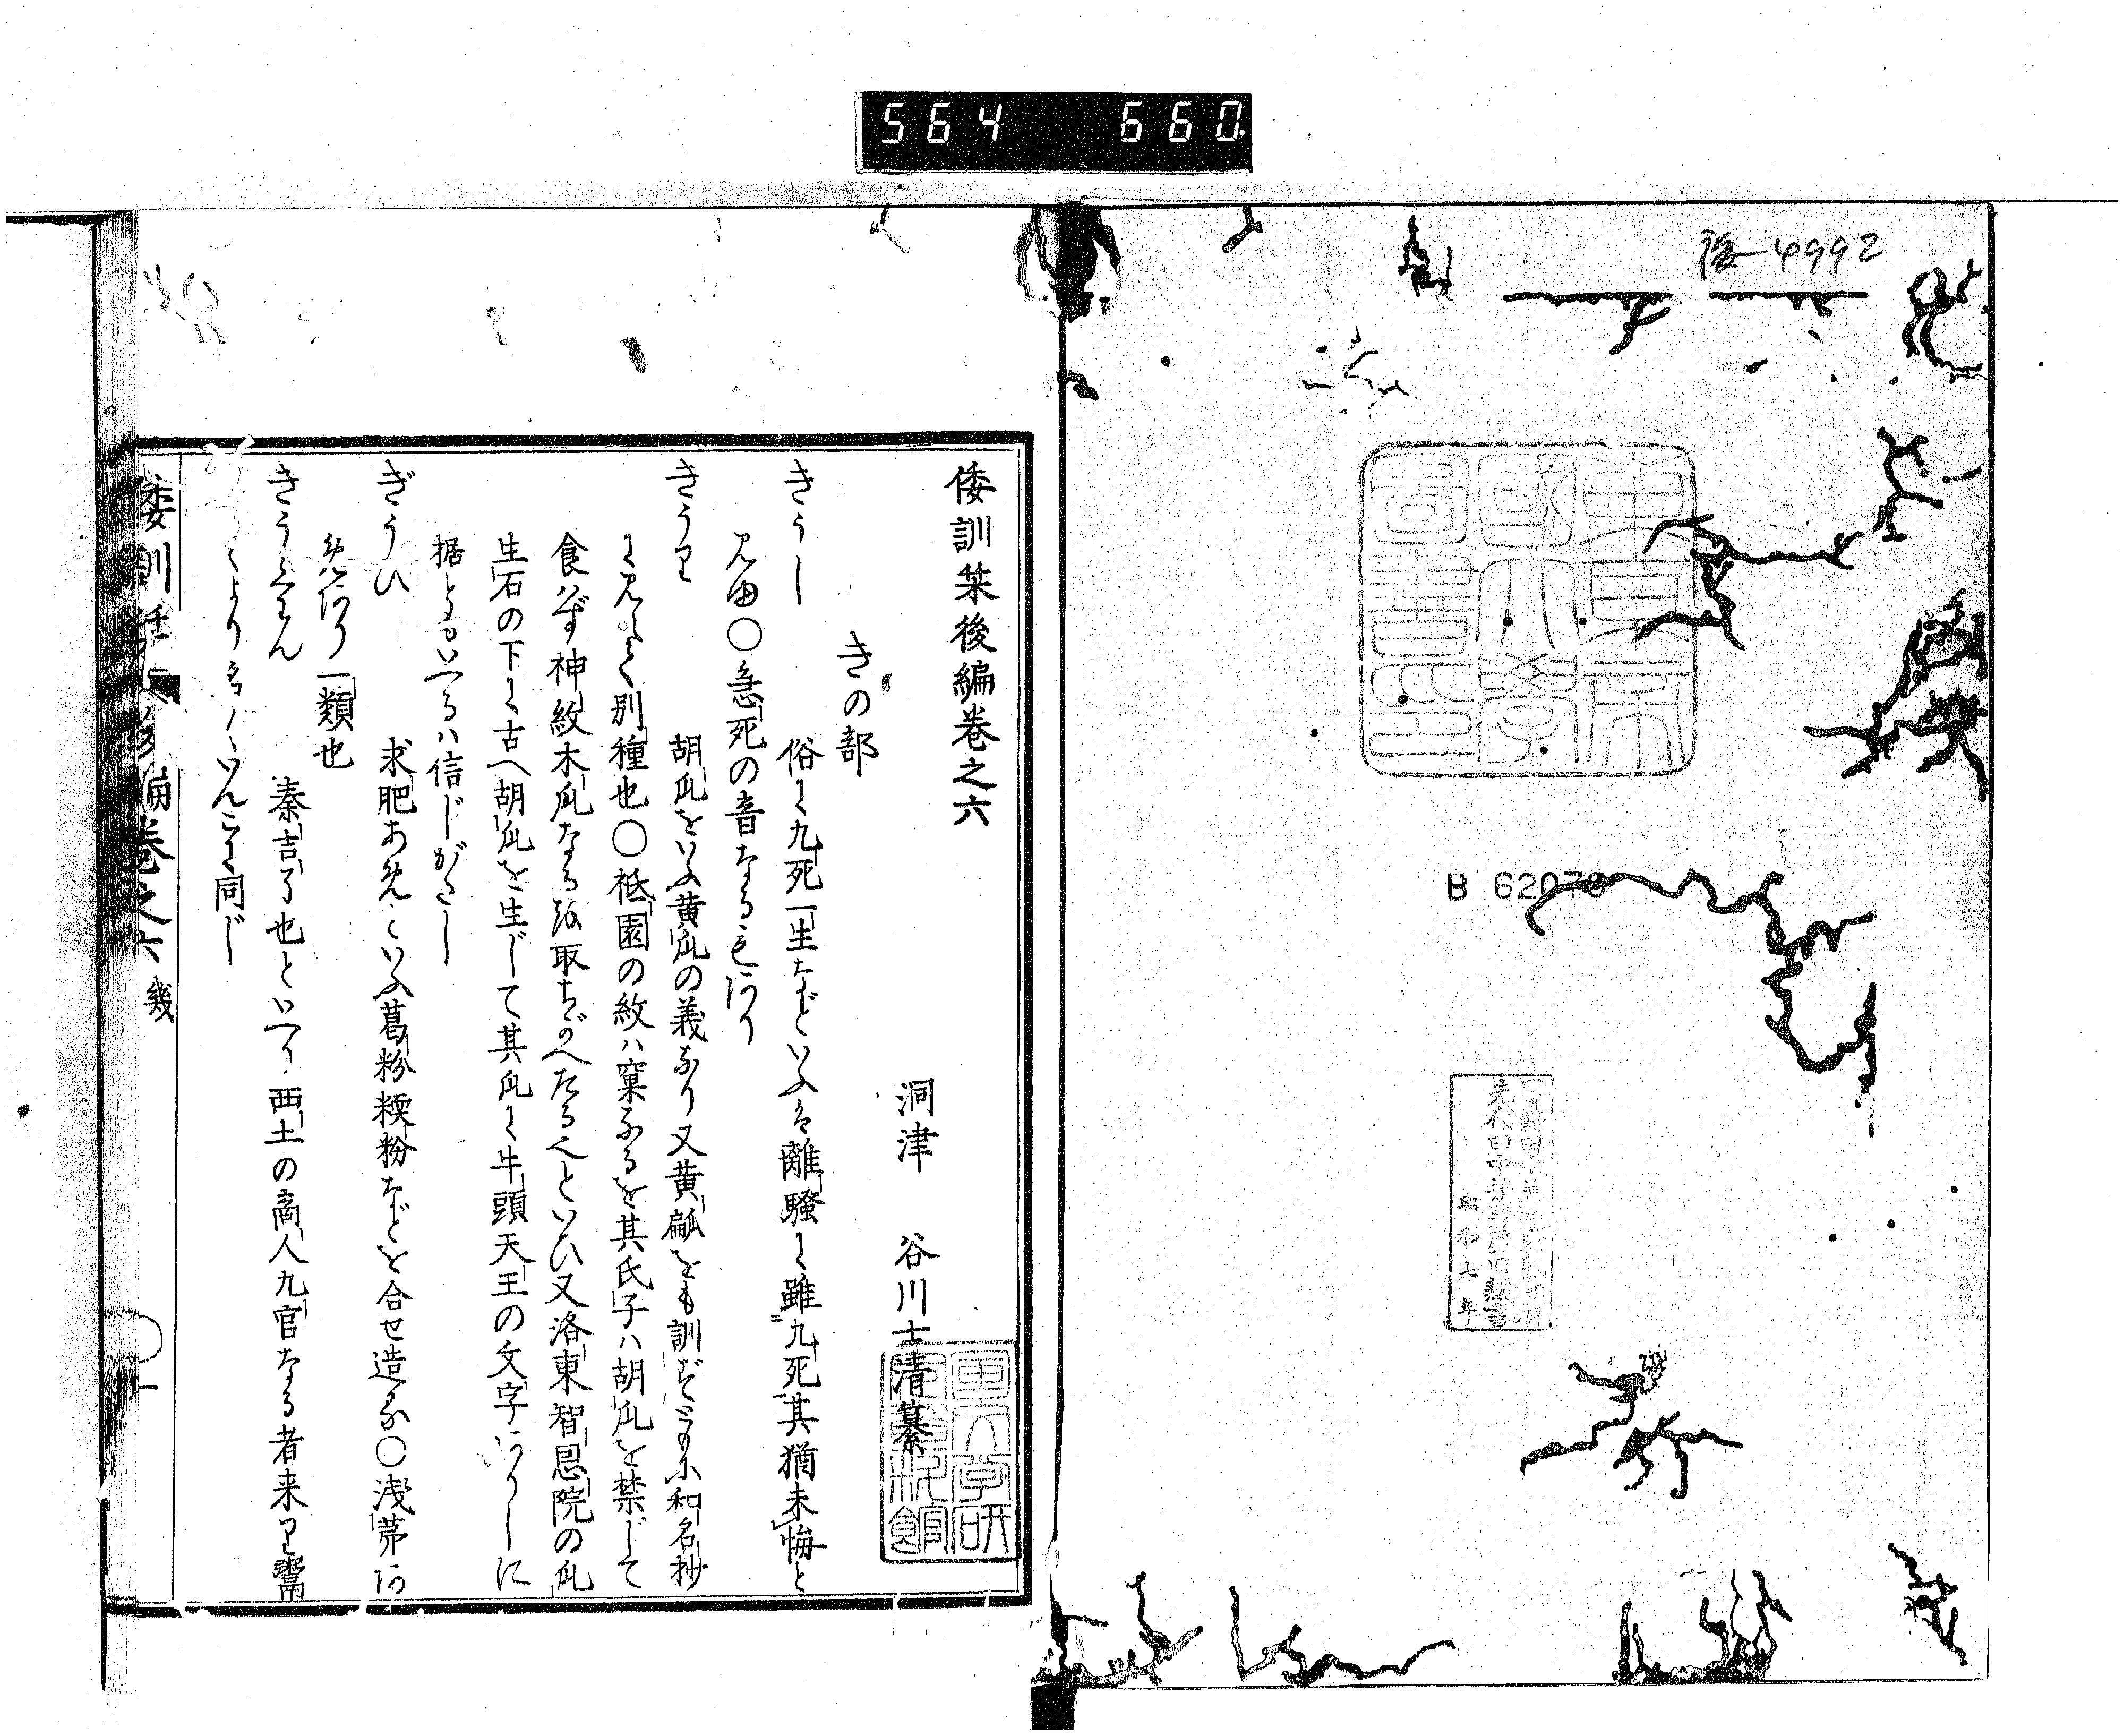 564 660
後―4992
東京帝
國大學
圖書印
B 62078
昭和七年
倭訓栞後編巻之六
洞津 谷川士清纂
きの部
きうし 俗に九死一生などいふは離騒に雖九死其猶未悔と
見ゆ〇急死の音なるもあり
きうり 胡瓜をいふ黄瓜の義なり又黄瓤をも訓ぜり
和名抄
に見えて別種也〇祗園の紋ハ窠なるを其氏子ハ胡瓜を禁じて
食はず神紋木瓜なるを取ちがへたる也といひ又洛東智恩院の瓜
生石の下に古へ胡瓜を生じて其瓜に牛頭天王の文字ありしに
据ともいへるハ信じがたし
ぎうひ 求肥あめといふ葛粉糯粉などを合せ造る〇浅茅あ
めあり一類也
きうくわん 秦吉了也といへり西土の商人九官なる者来り鬻
より名くいんこに同じ
倭訓栞後編巻之六 幾 一